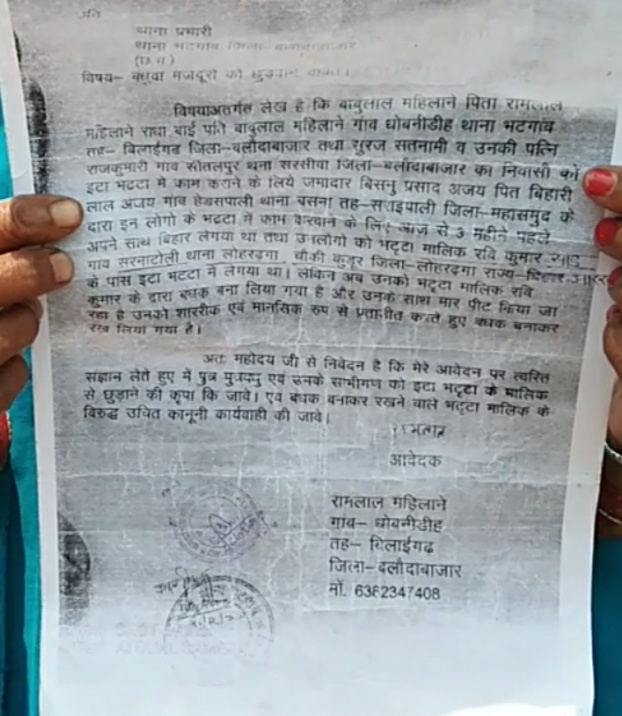 प्रति
थाना प्रभारी
थाना भटगांव जिला–बलौदाबाजार
(छ.ग)
विषय– बंधवा मजदूरों को छुड़वाने बाबत।
विषयाअतर्गत लेख है कि बाबुलाल महिलाने पिता रामलाल
महिलाने राधा बाई पति बाबुलाल महिलाने गांव धोबनीडीह थाना भटगांव
तह– बिलाईगढ जिला–बलौदाबाजार तथा सुरज सतनामी व उनकी पत्नि
राजकुमारी गाव सीतलपुर थना सरसीवा जिला–बलौदाबाजार का निवासी को
इटा भटटा में काम कराने के लिये जमादार बिसनु प्रसाद अजय पित बिहारी
लाल अजय गांव छेडसपाली थाना बसना तह–सराइपाली जिला–महासमुद के
दारा इन लोगो के भटटा में काम करवाने के लिए आज से 3 महीने पहले
अपने साथ बिहार लेगया था तथा उनलोगो को भट्टा मालिक रवि कुमार
गांव सरनाटोली थाना लोहरदगा चौकी कुडूर जिला–लोहरदगा राज्य–
के पास इटा भटटा में लेगया था। लेकिन अब उनको भट्टा मालिक रवि
कुमार के द्वारा बंधक बना लिया गया है और उनके साथ मार पीट किया जा
रहा है उनको शाररीक एवं मानसिक रुप से प्रताडीत करते हुए बंधक बनाकर
रख लिया गया है।
अतः महोदय जी से निवेदन है कि मेरे आवेदन पर त्वरित
सज्ञान लेते हुए में पुत्र पुत्रवधु एवं उनके साथीगण को इटा भट्टा के मालिक
से छुड़ाने की कृपा कि जावे। एवं बंधक बनाकर रखने वाले भट्टा मालिक के
विरुद्ध उचित कानूनी कार्यवाही की जावे।
रामलाल
आवेदक
रामलाल महिलाने
गांव– धोबनीडीह
तह– बिलाईगढ
जिला– बलौदाबाजार
मों. 6362347408